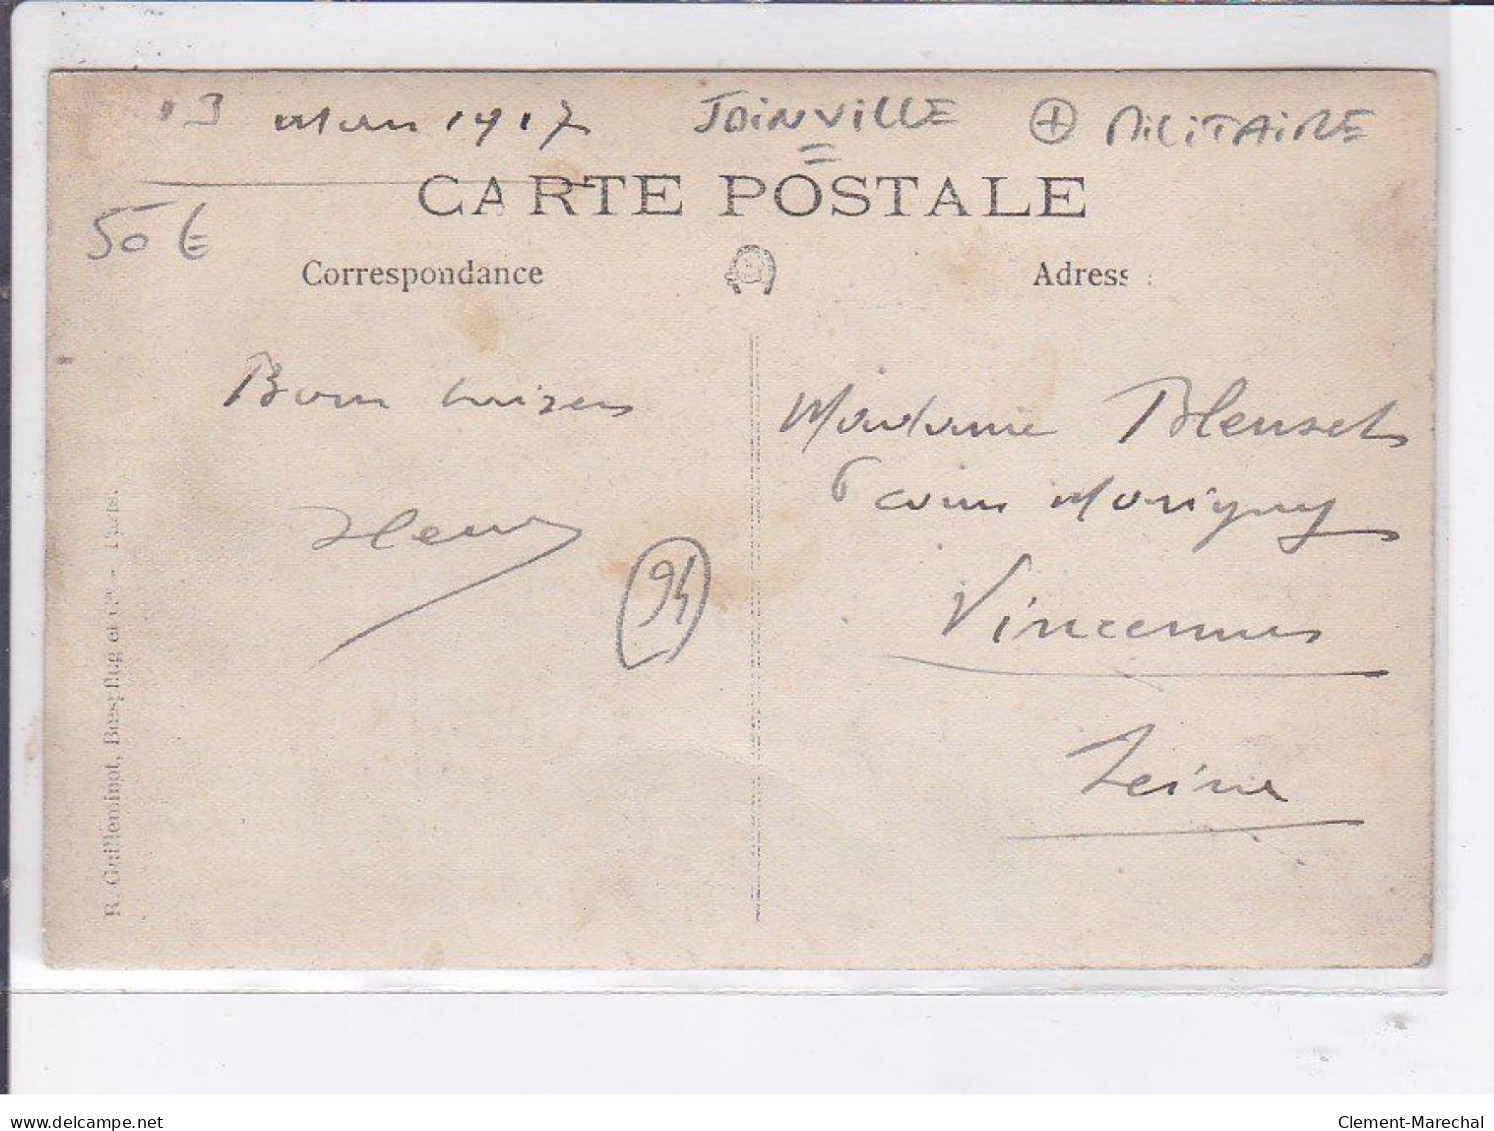 13 Mars 1917 JOINVILLE + MILITAIRE
CARTE POSTALE
50 €
Correspondance Adress
Bons baisers
Henry
94
Madame Bleuset
6 cours Marigny
Vincennes
Seine
R. Guilleminot, Bœspflug et Cie - Paris.
delcampe.net
Clement-Marechal